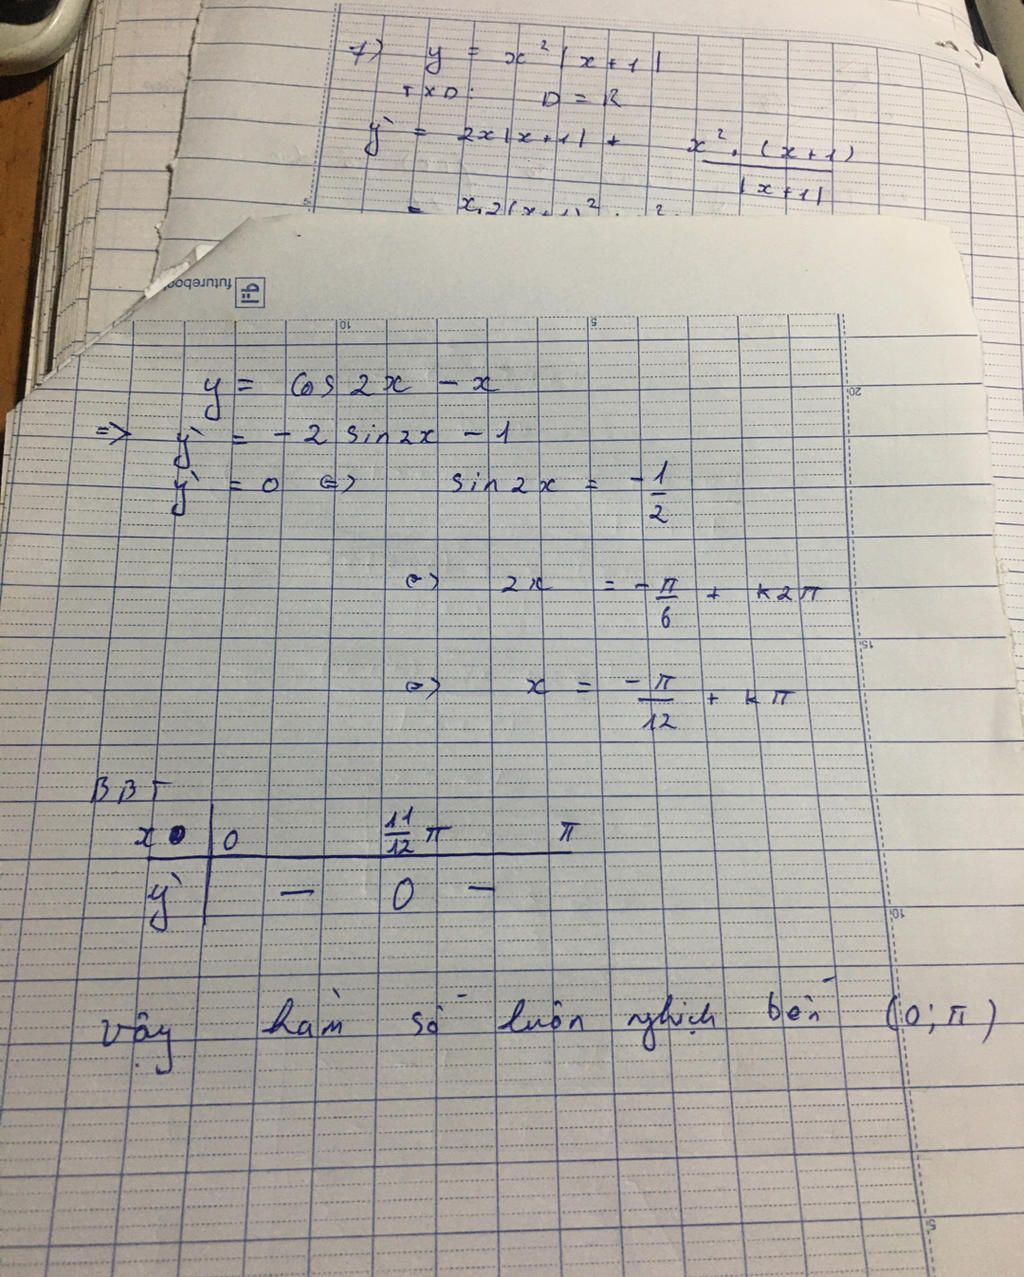 7) y = x² |x+1|
TXD: D = R
y' = 2x|x+1| + x². (x+1) / |x+1|
futureboo
10 5
y = cos 2x - x
20
=> y' = -2 sin2x - 1
y' = 0 <=> sin 2x = -1/2
<=> 2x = -π/6 + k2π
15
<=> x = -π/12 + kπ
BBT
x 0 11/12 π π
y' - 0 -
10
vậy hàm số luôn nghịch bến (0; π)
5